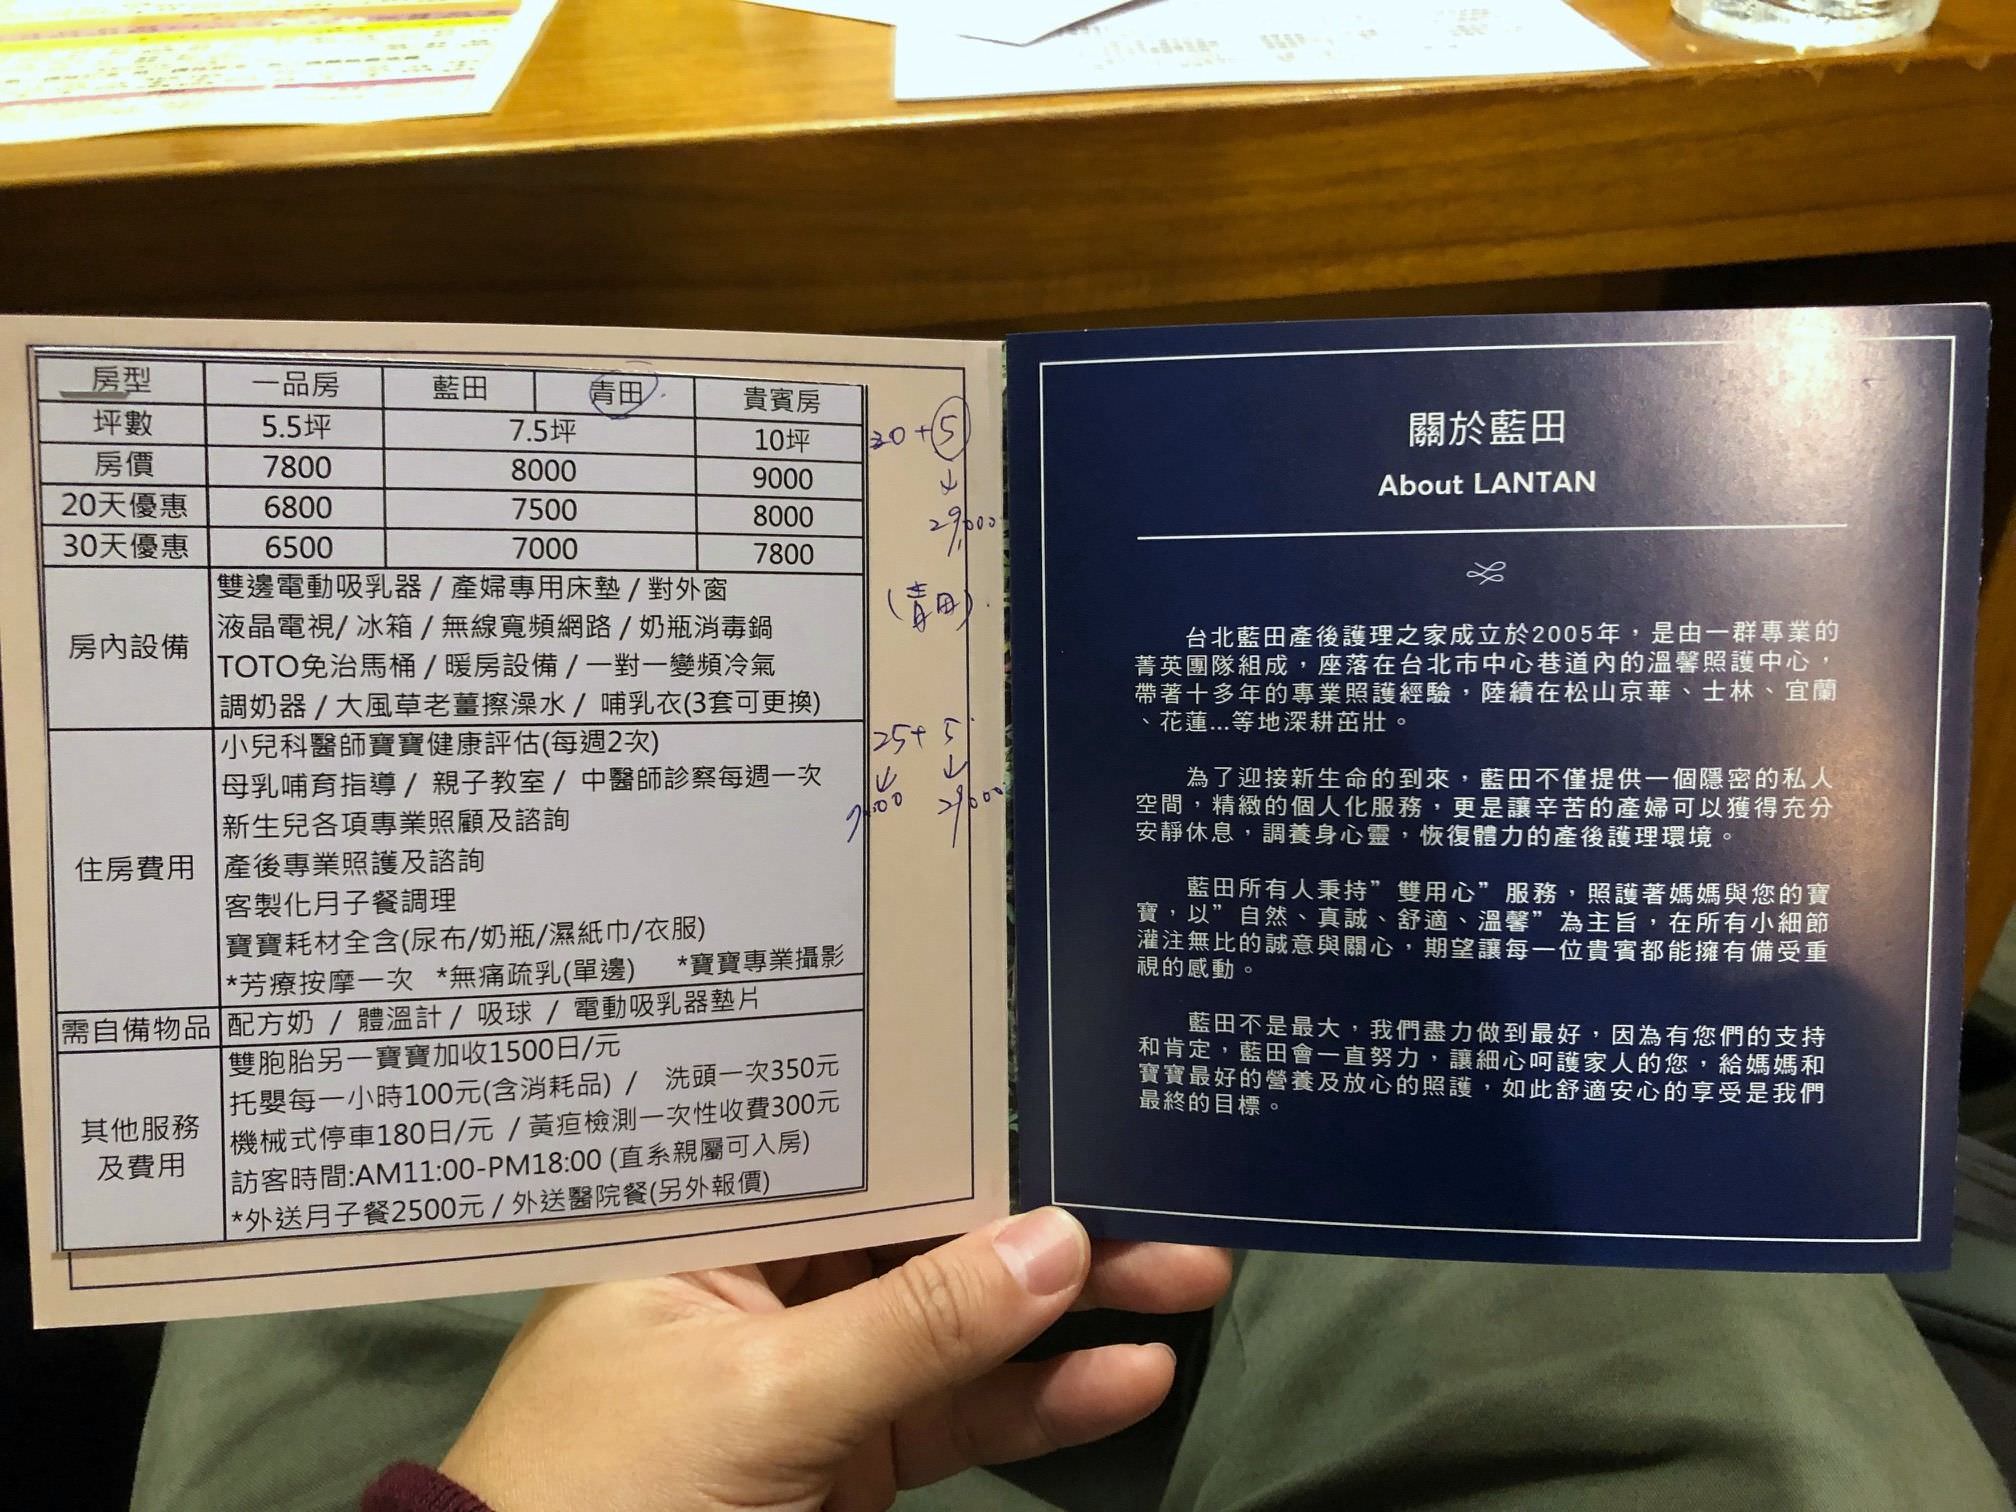 房型 一品房 藍田 青田 貴賓房
坪數 5.5坪 7.5坪 10坪
房價 7800 8000 9000
20天優惠 6800 7500 8000
30天優惠 6500 7000 7800
房內設備
雙邊電動吸乳器 / 產婦專用床墊 / 對外窗
液晶電視/ 冰箱 / 無線寬頻網路 / 奶瓶消毒鍋
TOTO免治馬桶 / 暖房設備 / 一對一變頻冷氣
調奶器 / 大風草老薑擦澡水 / 哺乳衣(3套可更換)
住房費用
小兒科醫師寶寶健康評估(每週2次)
母乳哺育指導 / 親子教室 / 中醫師診察每週一次
新生兒各項專業照顧及諮詢
產後專業照護及諮詢
客製化月子餐調理
寶寶耗材全含(尿布/奶瓶/濕紙巾/衣服)
*芳療按摩一次 *無痛疏乳(單邊) *寶寶專業攝影
需自備物品 配方奶 / 體溫計 / 吸球 / 電動吸乳器墊片
其他服務
及費用
雙胞胎另一寶寶加收1500日/元
托嬰每一小時100元(含消耗品) / 洗頭一次350元
機械式停車180日/元 / 黃疸檢測一次性收費300元
訪客時間:AM11:00-PM18:00 (直系親屬可入房)
*外送月子餐2500元 / 外送醫院餐(另外報價)
+ 5
↓
29,000
(青田).
25 + 5
↓ ↓
29,000
關於藍田
About LANTAN
台北藍田產後護理之家成立於2005年，是由一群專業的
菁英團隊組成，座落在台北市中心巷道內的溫馨照護中心，
帶著十多年的專業照護經驗，陸續在松山京華、士林、宜蘭
、花蓮...等地深耕茁壯。
為了迎接新生命的到來，藍田不僅提供一個隱密的私人
空間，精緻的個人化服務，更是讓辛苦的產婦可以獲得充分
安靜休息，調養身心靈，恢復體力的產後護理環境。
藍田所有人秉持”雙用心”服務，照護著媽媽與您的寶
寶，以”自然、真誠、舒適、溫馨”為主旨，在所有小細節
灌注無比的誠意與關心，期望讓每一位貴賓都能擁有備受重
視的感動。
藍田不是最大，我們盡力做到最好，因為有您們的支持
和肯定，藍田會一直努力，讓細心呵護家人的您，給媽媽和
寶寶最好的營養及放心的照護，如此舒適安心的享受是我們
最終的目標。